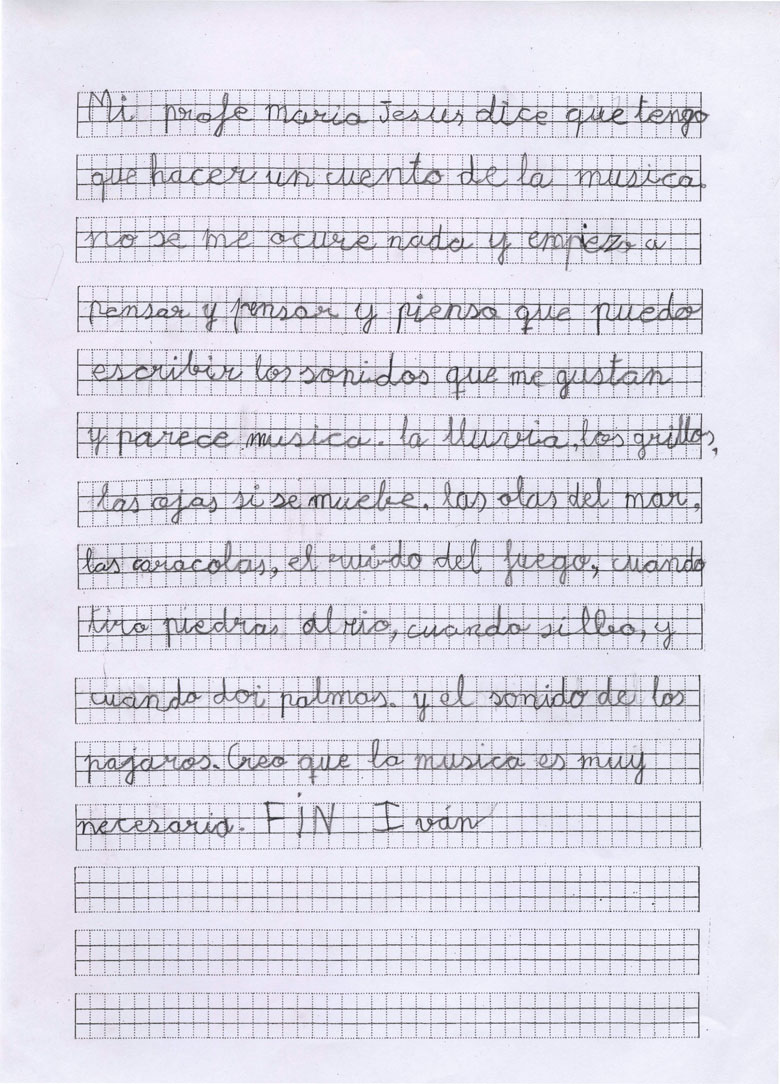 Mi profe maria Jesus dice que tengo
que hacer un cuento de la musica.
no se me ocure nada y empiezo a
pensar y pensar y pienso que puedo
escribir los sonidos que me gustan
y parece musica. la lluvia, los grillos,
las ojas si se muebe. las olas del mar,
las caracolas, el ruido del fuego, cuando
tiro piedras al rio, cuando silbo, y
cuando doi palmas. y el sonido de los
pajaros. Creo que la musica es muy
necesaria. FIN Iván